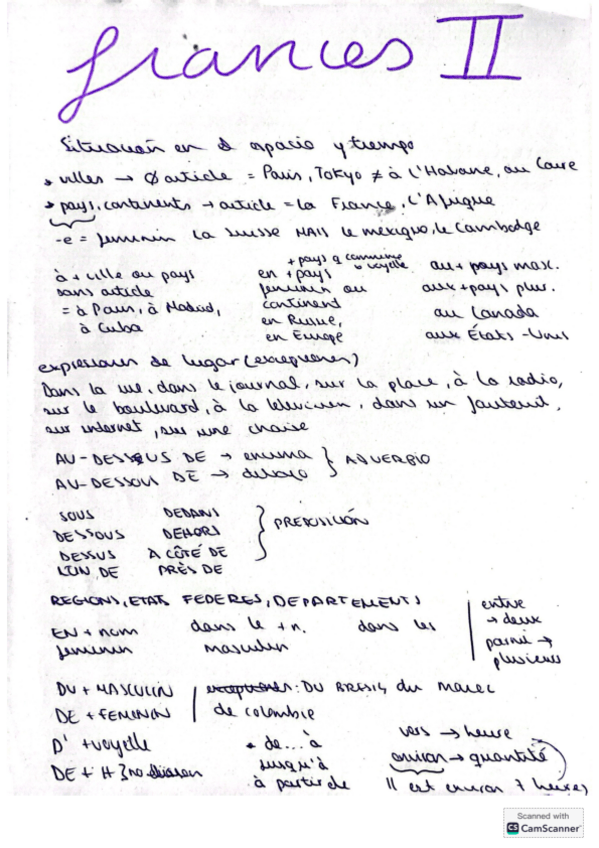 francés II
Situación en el espacio y tiempo
* villes → Ø article = Paris, Tokyo ≠ à l'Habane, au Caire
* pays, continents → article = la France, l'Afrique
-e = feminin la suisse MAIS le mexique, le Cambodge
à + ville ou pays
sans article
= à Paris, à Madrid,
à Cuba
+ pays q commence
voyelle
en + pays
feminin ou
continent
en Russie,
en Europe
au + pays masc.
aux + pays plur.
au Canada
aux États-Unis
expresiones de lugar (excepciones)
Dans la rue, dans le journal, sur la place, à la radio,
sur le boulevard, à la television, dans un fauteuil,
sur internet, sur une chaise
AU-DESSUS DE → encima
AU-DESSOUS DE → debajo
ADVERBIO
SOUS DEDANS
DESSOUS DEHORS
DESSUS À CÔTÉ DE
LOIN DE PRÈS DE
PREPOSICIÓN
REGIONS, ETATS FEDERES, DEPARTEMENTS
EN + nom
feminin
dans le + n.
masculin
dans les
entre
→ deux
parmi →
plusieurs
DU + MASCULIN
DE + FEMININ
excepciones: DU BRESIL, du maroc
de colombie
D' + voyelle
DE + H } no liaison
* de... à
jusqu'à
à partir de
vers → heure
environ → quantité
Il est environ 7 heures
Scanned with
CS CamScanner